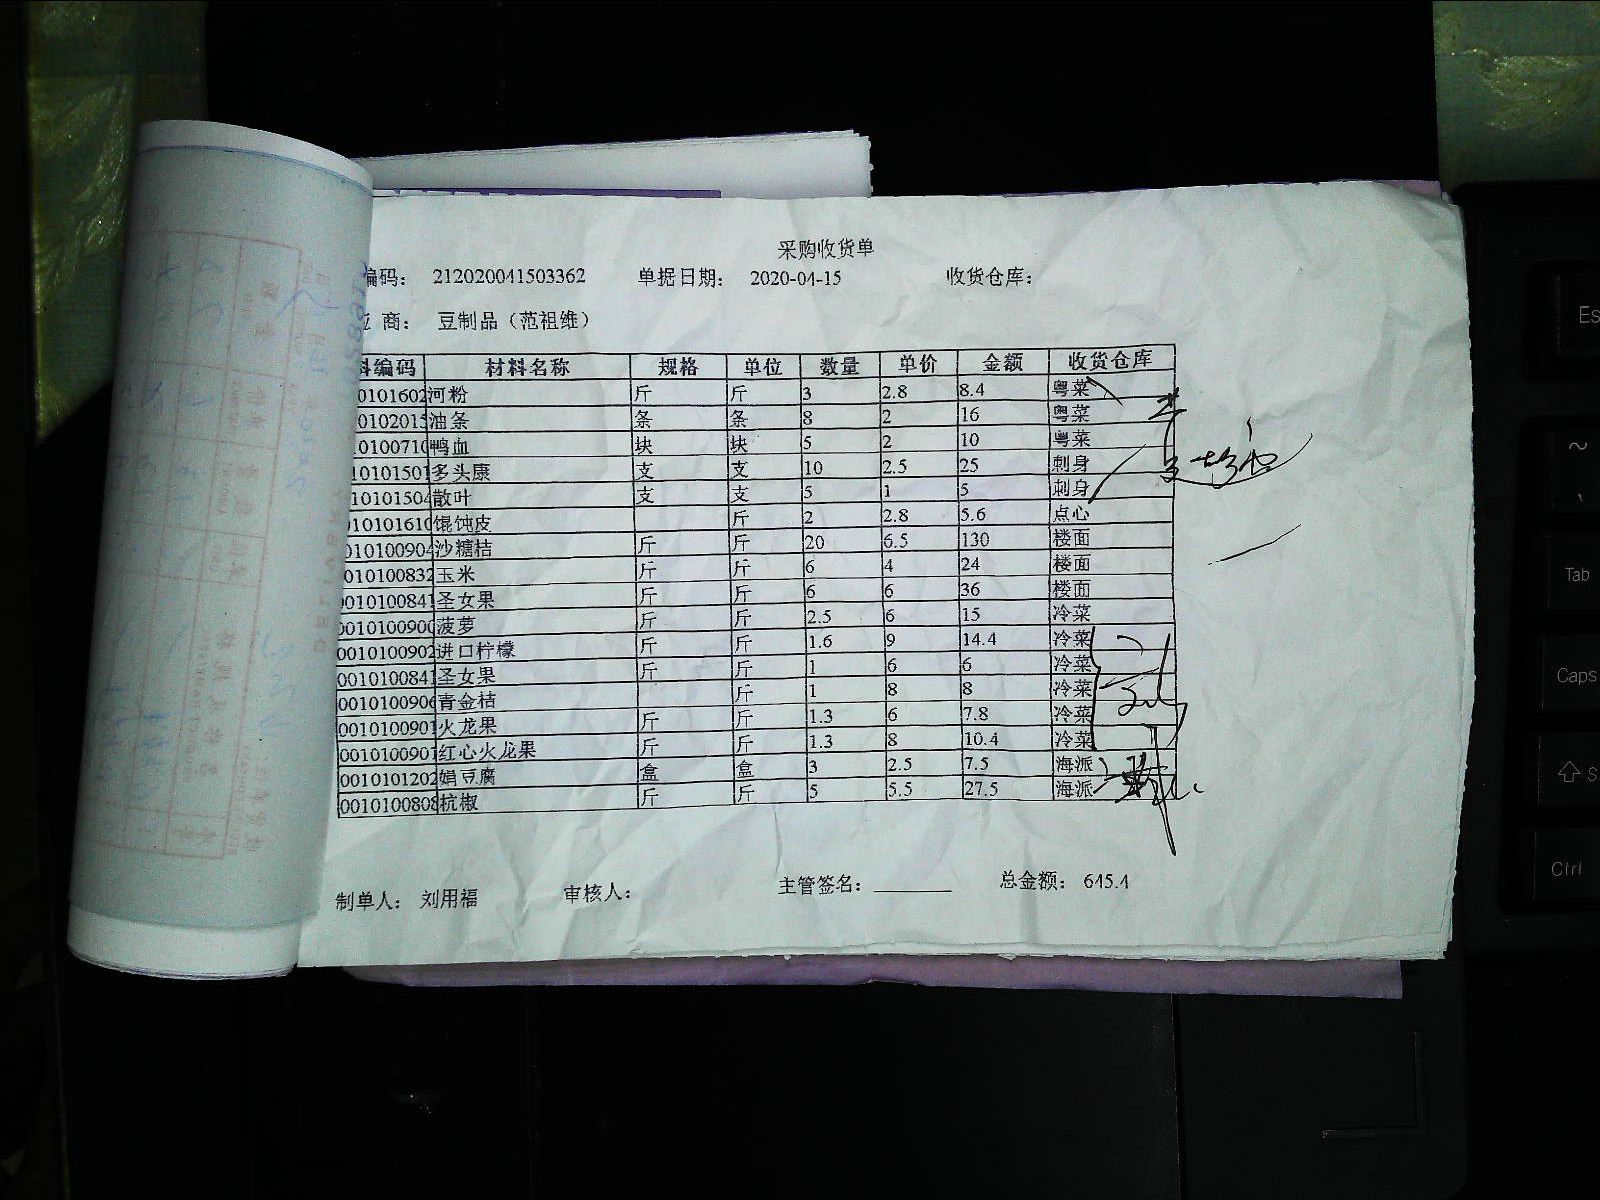 采购收货单
编码： 212020041503362 单据日期： 2020-04-15 收货仓库：
应 商： 豆制品（范祖维）
料编码 材料名称 规格 单位 数量 单价 金额 收货仓库
0101602 河粉 斤 斤 3 2.8 8.4 粤菜
010201 油条 条 条 8 2 16 粤菜
010100710 鸭血 块 块 5 2 10 粤菜
10101501 多头康 支 支 10 2.5 25 刺身
10101504 散叶 支 支 5 1 5 刺身
010101610 馄饨皮 斤 2 2.8 5.6 点心
010100904 沙糖桔 斤 斤 20 6.5 130 楼面
010100832 玉米 斤 斤 6 4 24 楼面
001010084 圣女果 斤 斤 6 6 36 楼面
001010090 菠萝 斤 斤 2.5 6 15 冷菜
0010100902 进口柠檬 斤 斤 1.6 9 14.4 冷菜
001010084 圣女果 斤 斤 1 6 6 冷菜
0010100906 青金桔 斤 1 8 8 冷菜
001010090 火龙果 斤 斤 1.3 6 7.8 冷菜
001010090 红心火龙果 斤 斤 1.3 8 10.4 冷菜
0010101202 娟豆腐 盒 盒 3 2.5 7.5 海派
0010100808 杭椒 斤 斤 5 5.5 27.5 海派
制单人： 刘用福 审核人： 主管签名： 总金额： 645.4
Es
~
Tab
Caps
S
Ctrl